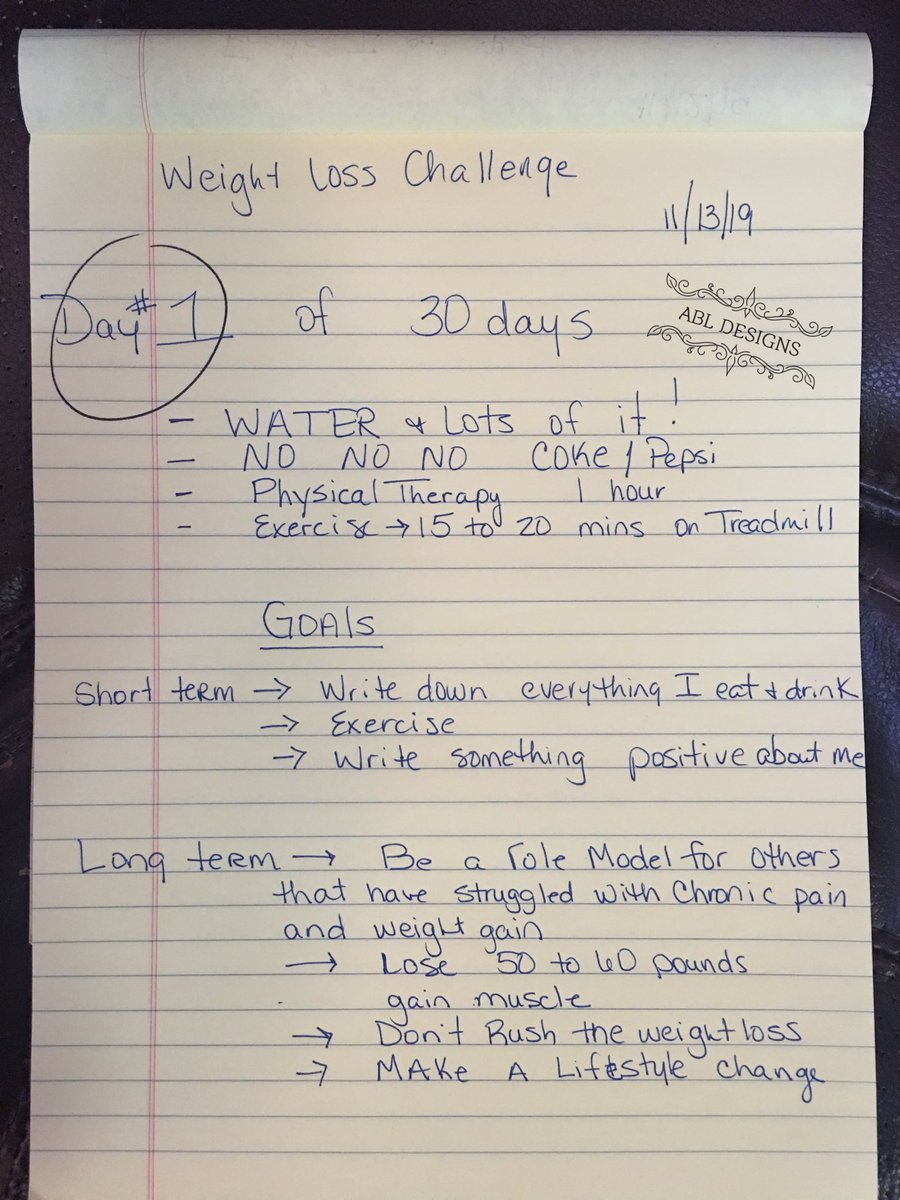 Weight Loss Challenge
11/13/19
Day # 1 of 30 days
ABL DESIGNS
- WATER & Lots of it!
- NO NO NO COKE / Pepsi
- Physical Therapy 1 hour
- Exercise → 15 to 20 mins on Treadmill
GOAls
Short term → Write down everything I eat & drink
→ Exercise
→ Write something positive about me
Long term → Be a role Model for others
that have struggled with Chronic pain
and weight gain
→ Lose 50 to 60 pounds
gain muscle
→ Don't Rush the weight loss
→ MAKe A Lifestyle change